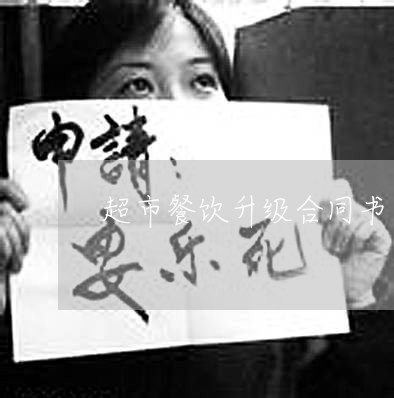 申請：
超市餐饮升级合同书
安乐死